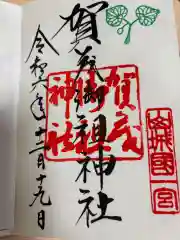 賀茂御祖神社
賀茂
神社
山城國一宮
令和六年十二月十九日